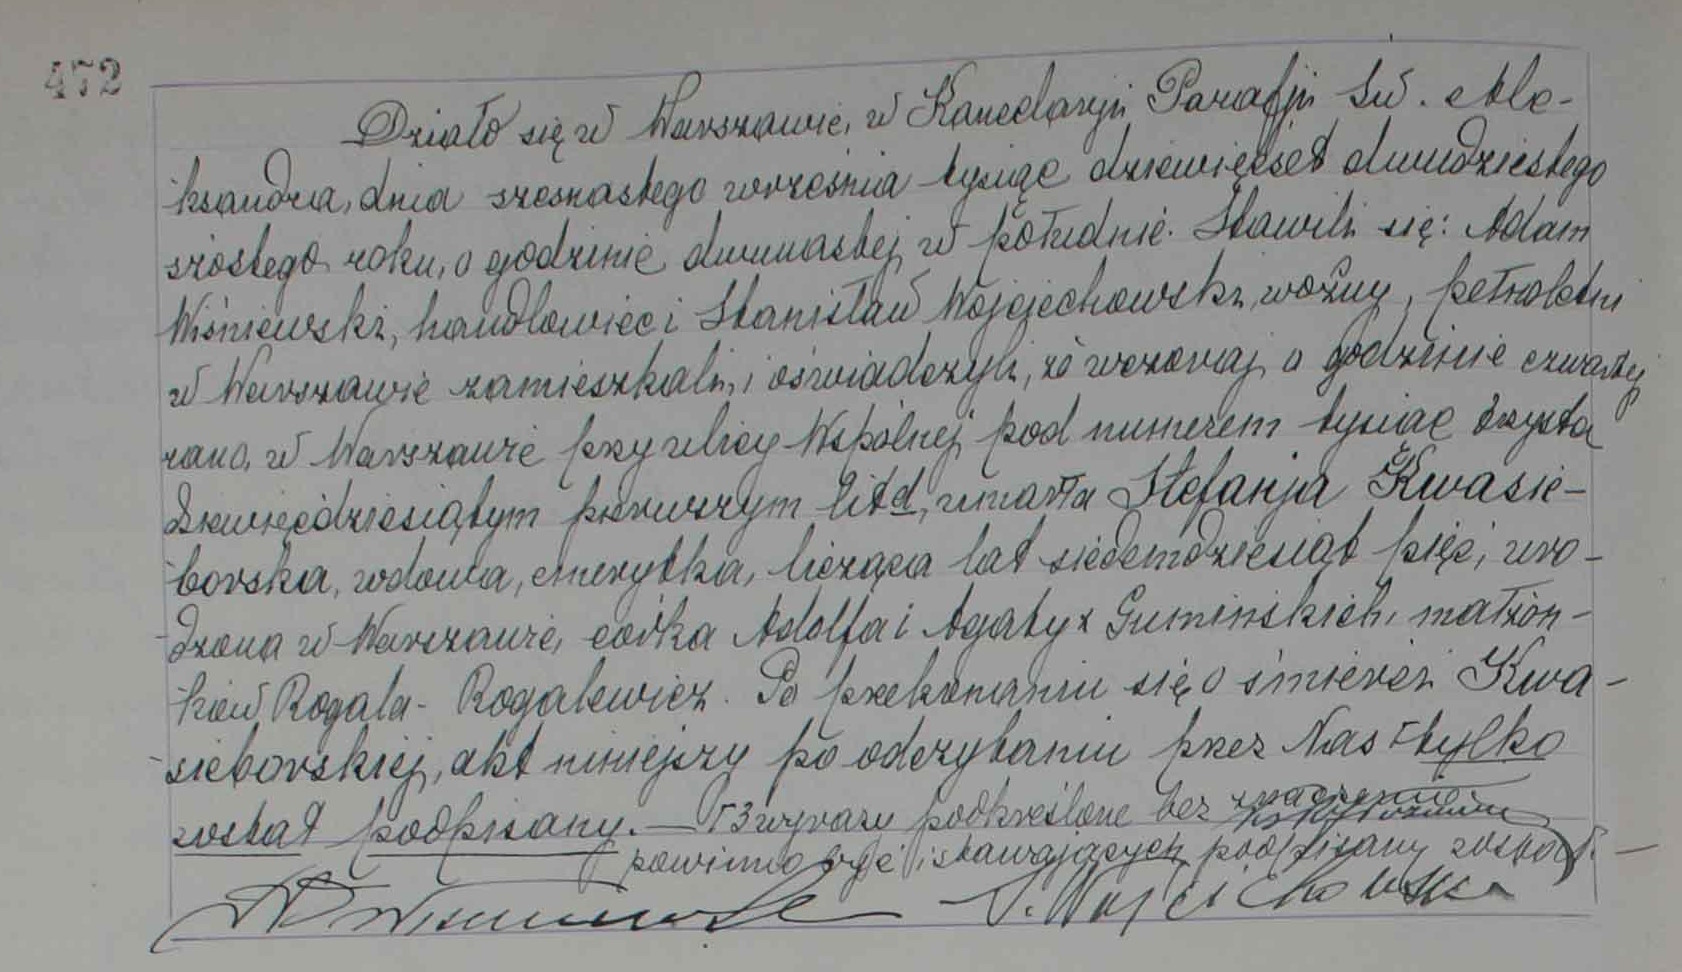 472
Działo się w Warszawie, w Kancelaryi Parafji Św. Ale-
ksandra, dnia szesnastego września tysiąc dziewięćset dwudziestego
szóstego roku, o godzinie dwunastej w południe. Stawili się: Adam
Wiśniewski, handlowiec i Stanisław Wojciechowski, woźny, pełnoletni
w Warszawie zamieszkali, i oświadczyli, że wczoraj o godzinie czwartej
rano, w Warszawie przy ulicy Wspólnej pod numerem tysiąc trzysta
dziewięćdziesiątym pierwszym lit d, umarła Stefanja Kwasie-
borska, wdowa, emerytka, licząca lat siedemdziesiąt pięć, uro-
dzona w Warszawie, córka Adolfa i Agaty z Gumińskich, małżon-
ków Rogala-Rogalewicz. Po przekonaniu się o śmierci Kwa-
sieborskiej, akt niniejszy po odczytaniu przez Nas tylko
został podpisany. — 3 wyrazy podkreślone bez znaczenia
powinno być i stawających podpisany został. —
A Wiśniewski S. Wojciechowski